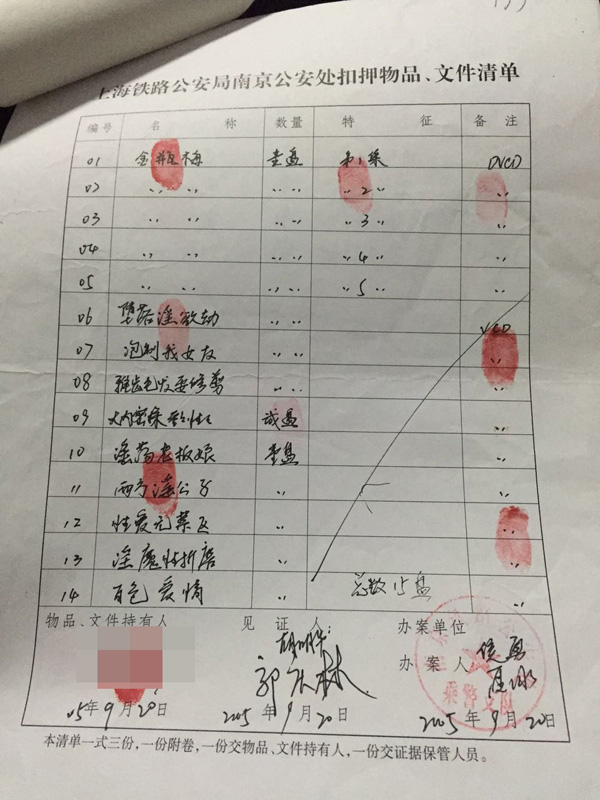 上海铁路公安局南京公安处扣押物品、文件清单
编号 名 称 数量 特 征 备 注
01 金瓶梅 壹盘 第1集 DVCD
02 〃 〃 〃 〃 〃 2 〃 〃
03 〃 〃 〃 〃 〃 3 〃 〃
04 〃 〃 〃 〃 〃 4 〃 〃
05 〃 〃 〃 〃 〃 5 〃 〃
06 堕落淫欲劫 〃 〃 VCD
07 泡制我女友 〃 〃 〃
08 〃 〃 〃
09 贰盘 〃
10 淫荡老板娘 壹盘 〃
11 淫公子 〃 〃
12 性爱无禁区 〃 〃
13 淫魔性折磨 〃 〃
14 百色爱情 〃 总数15盘 〃
物品、文件持有人 见 证 人: 办案单位
办 案 人
05年9月20日 2005年9月20日 2005年9月20日
乘警支队
本清单一式三份,一份附卷,一份交物品、文件持有人,一份交证据保管人员。